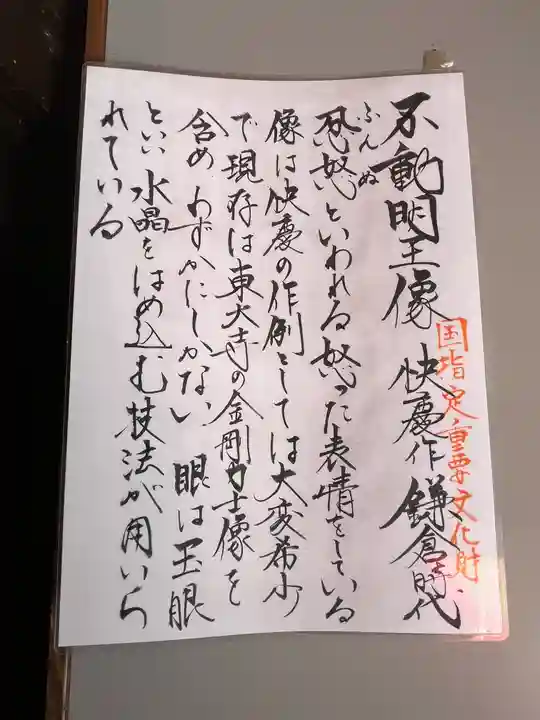 国指定重要文化財
不動明王像 快慶作 鎌倉時代
ふんぬ
忿怒といわれる怒った表情をしている
像は快慶の作例としては大変希少
で現存は東大寺の金剛力士像を
含め わずかにしかない 眼は玉眼
といい 水晶をはめ込む技法が用いら
れている